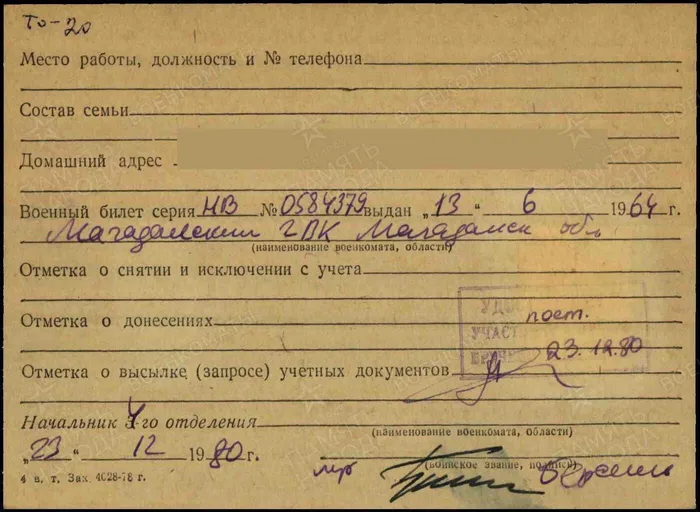 То-20
Место работы, должность и № телефона
Состав семьи
Домашний адрес
Военный билет серия НВ № 0584379 выдан „13“ 6 1964 г.
Магаданский ГВК Магаданск обл
(наименование военкомата, области)
Отметка о снятии и исключении с учета
Отметка о донесениях пост.
23.12.80
Отметка о высылке (запросе) учетных документов
Начальник 4-го отделения
(наименование военкомата, области)
„23“ 12 1980 г.
(воинское звание, подпись)
4 в. т. Зах. 4028-78 г.